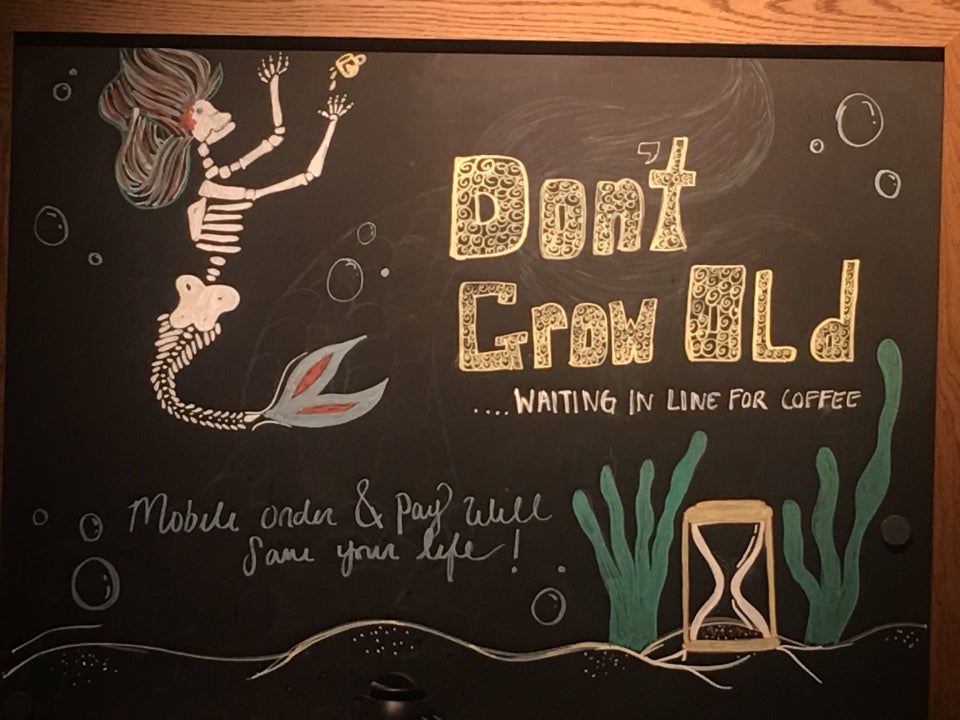 Don't
Grow Old
....WAITING IN LINE FOR COFFEE
Mobile order & Pay Will
Save your life!